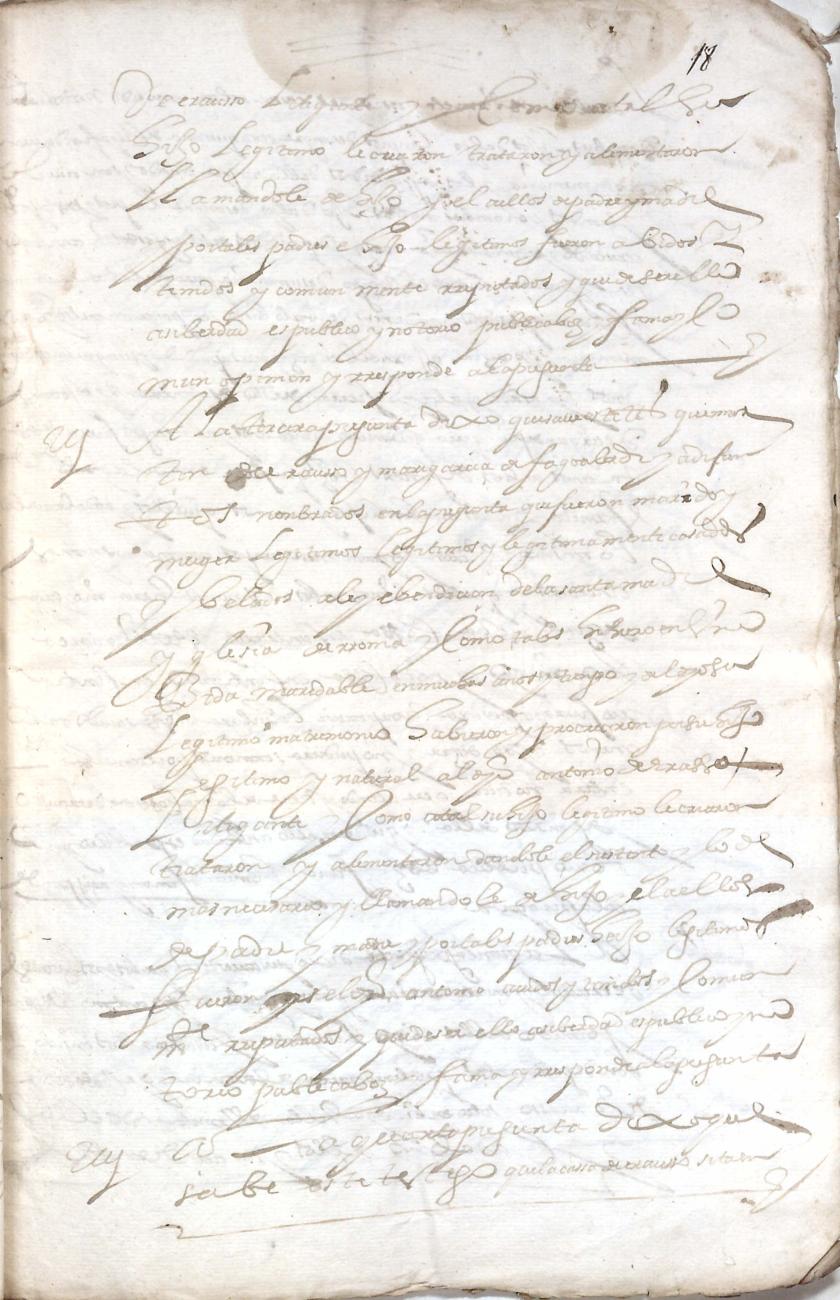 18
de erauso litigante y como atal su
hijo legitimo le criaron trataron y alimentaron
llamandole de hijo y el a ellos de padre y madre
y por tales padres e hijo legitimos fueron abidos
tenidos y comun mente rreputados y que de ser ello
asi berdad es publico y notorio publica boz y fama y co
mun opinion y rresponde a la pregunta
iij A la tercera pregunta dixo que saue este tº que
de erauso y maria garcia de sagoaldi ya difun
tos nonbrados en la pregunta que fueron marido y
muger legitimos y legitimamente casados
y belados a ley e bendicion de la santa madre
yglesia de rroma y como tales hizieron
bida maridable en muchos años y tienpo y de
legitimo matrimonio hubieron y procrearon por su hijo
legitimo y natural al dho antonio de erasso
litigante y como atal su hijo legitimo le criaron
trataron y alimentaron dandole el sustento y lo de
mas necesario y llamandole de hijo y el a ellos
de padre y madre y por tales padres hijo legitimos
fueron el dho antonio auidos y tenidos y comun
mte rreputados y que de ser ello asi berdad es publico y no
torio publica boz y fama y rresponde a la pregunta
iiij A la quarta pregunta dixo que
sabe este testigo que la cassa de erausso sita en